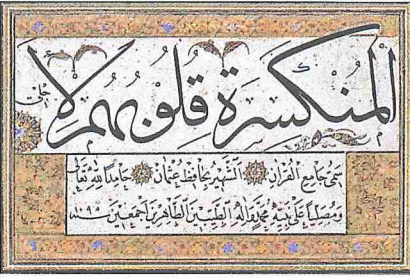 المُنكَسِرَة قُلُوبُهُم لاجلى
سمى جامع القرآن الشهير بحافظ عثمان حامدا لله تعالى
ومصليا على نبيه محمد وآله الطيبين الطاهرين اجمعين